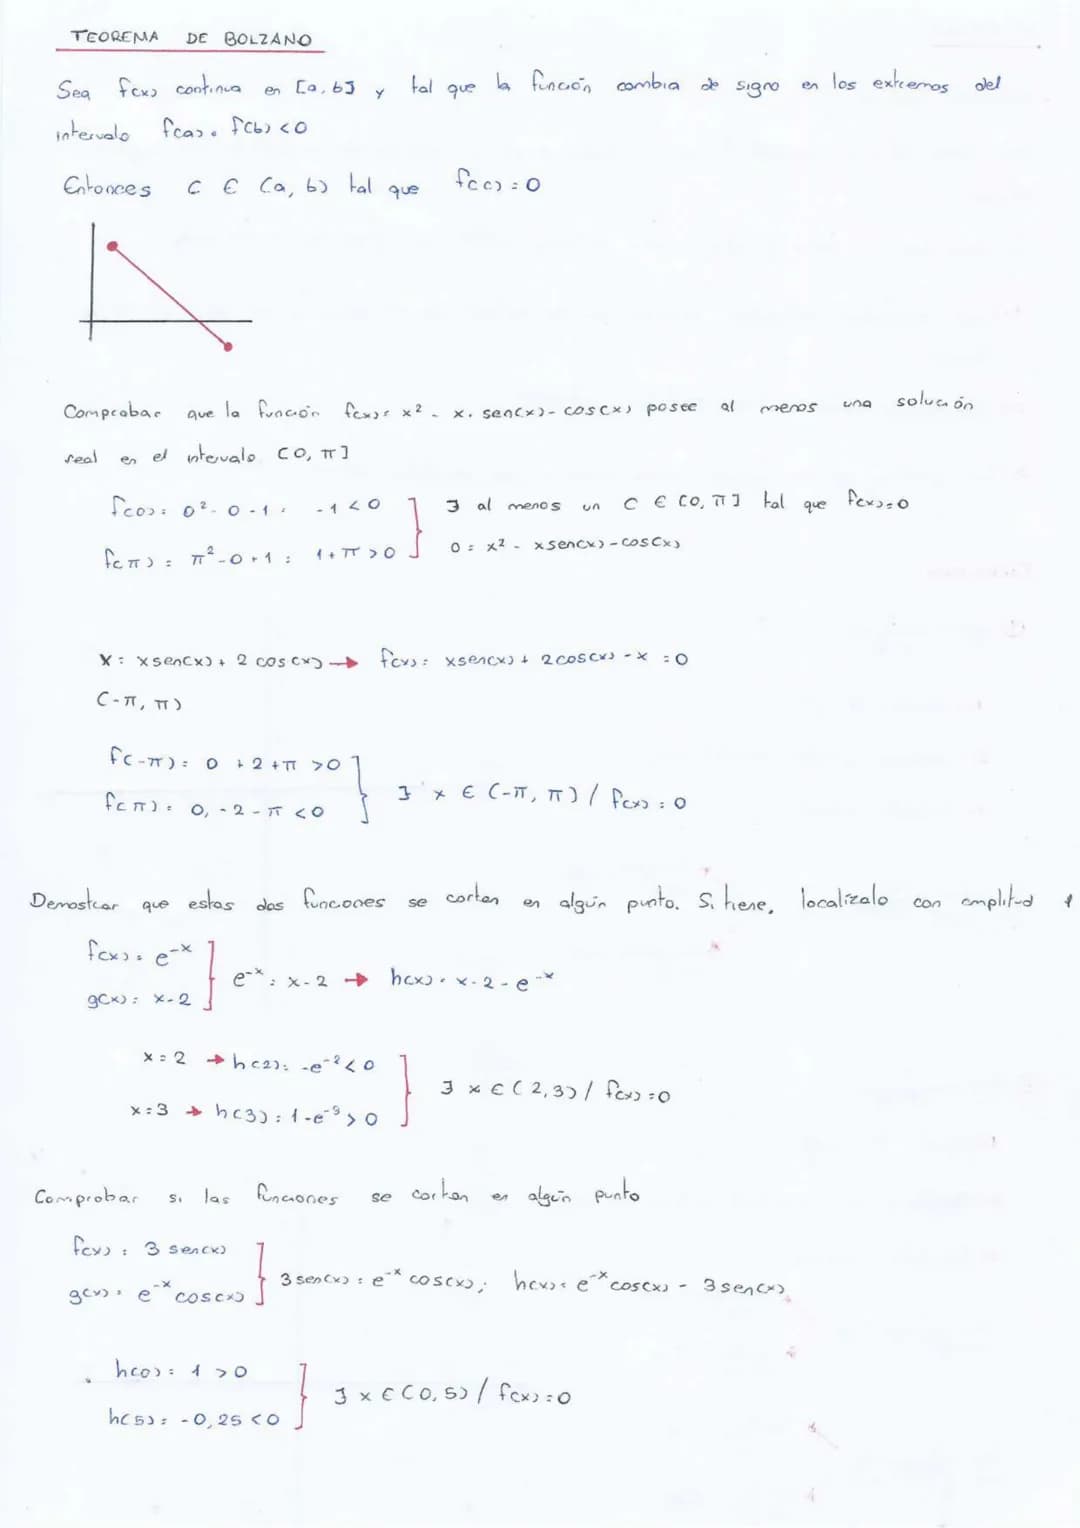 TEOREMA DE BOLZANO
Sea f(x) continua en [a, b] y tal que la función cambia de signo en los extremos del
intervalo f(a) · f(b) < 0
Entonces C ∈ (a, b) tal que f(c) = 0
Comprobar que la función f(x) = x² - x · sen(x) - cos(x) posee al menos una solución
real en el intervalo [0, π]
f(0) = 0² - 0 - 1 = -1 < 0
∃ al menos un C ∈ [0, π] tal que f(x) = 0
f(π) = π² - 0 + 1 = 1 + π > 0
0 = x² - xsen(x) - cos(x)
x = xsen(x) + 2 cos(x) → f(x) = xsen(x) + 2cos(x) - x = 0
(-π, π)
f(-π) = 0 + 2 + π > 0
∃ x ∈ (-π, π) / f(x) = 0
f(π) = 0, - 2 - π < 0
Demostrar que estas dos funciones se cortan en algún punto. Si tiene, localízalo con amplitud 1
f(x) = e⁻ˣ
g(x) = x - 2
e⁻ˣ = x - 2 → h(x) = x - 2 - e⁻ˣ
x = 2 → h(2) = -e⁻² < 0
∃ x ∈ (2,3) / f(x) = 0
x = 3 → h(3) = 1 - e⁻³ > 0
Comprobar si las funciones se cortan en algún punto
f(x) = 3 sen(x)
g(x) = e⁻ˣ cos(x)
3 sen(x) = e⁻ˣ cos(x); h(x) = e⁻ˣ cos(x) - 3 sen(x)
h(0) = 1 > 0
∃ x ∈ (0, 5) / f(x) = 0
h(5) = -0,25 < 0